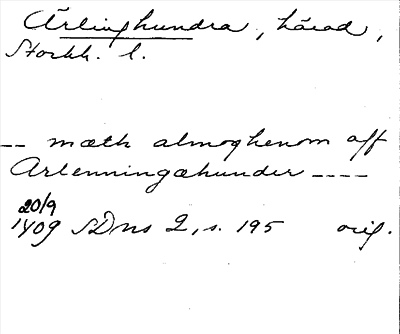 Ärlinghundra, härad,
Stockh. l.
-- mæth almoghenom aff
Arlenningæhunder ----
20/9
1409 SDns 2, s. 195 orig.